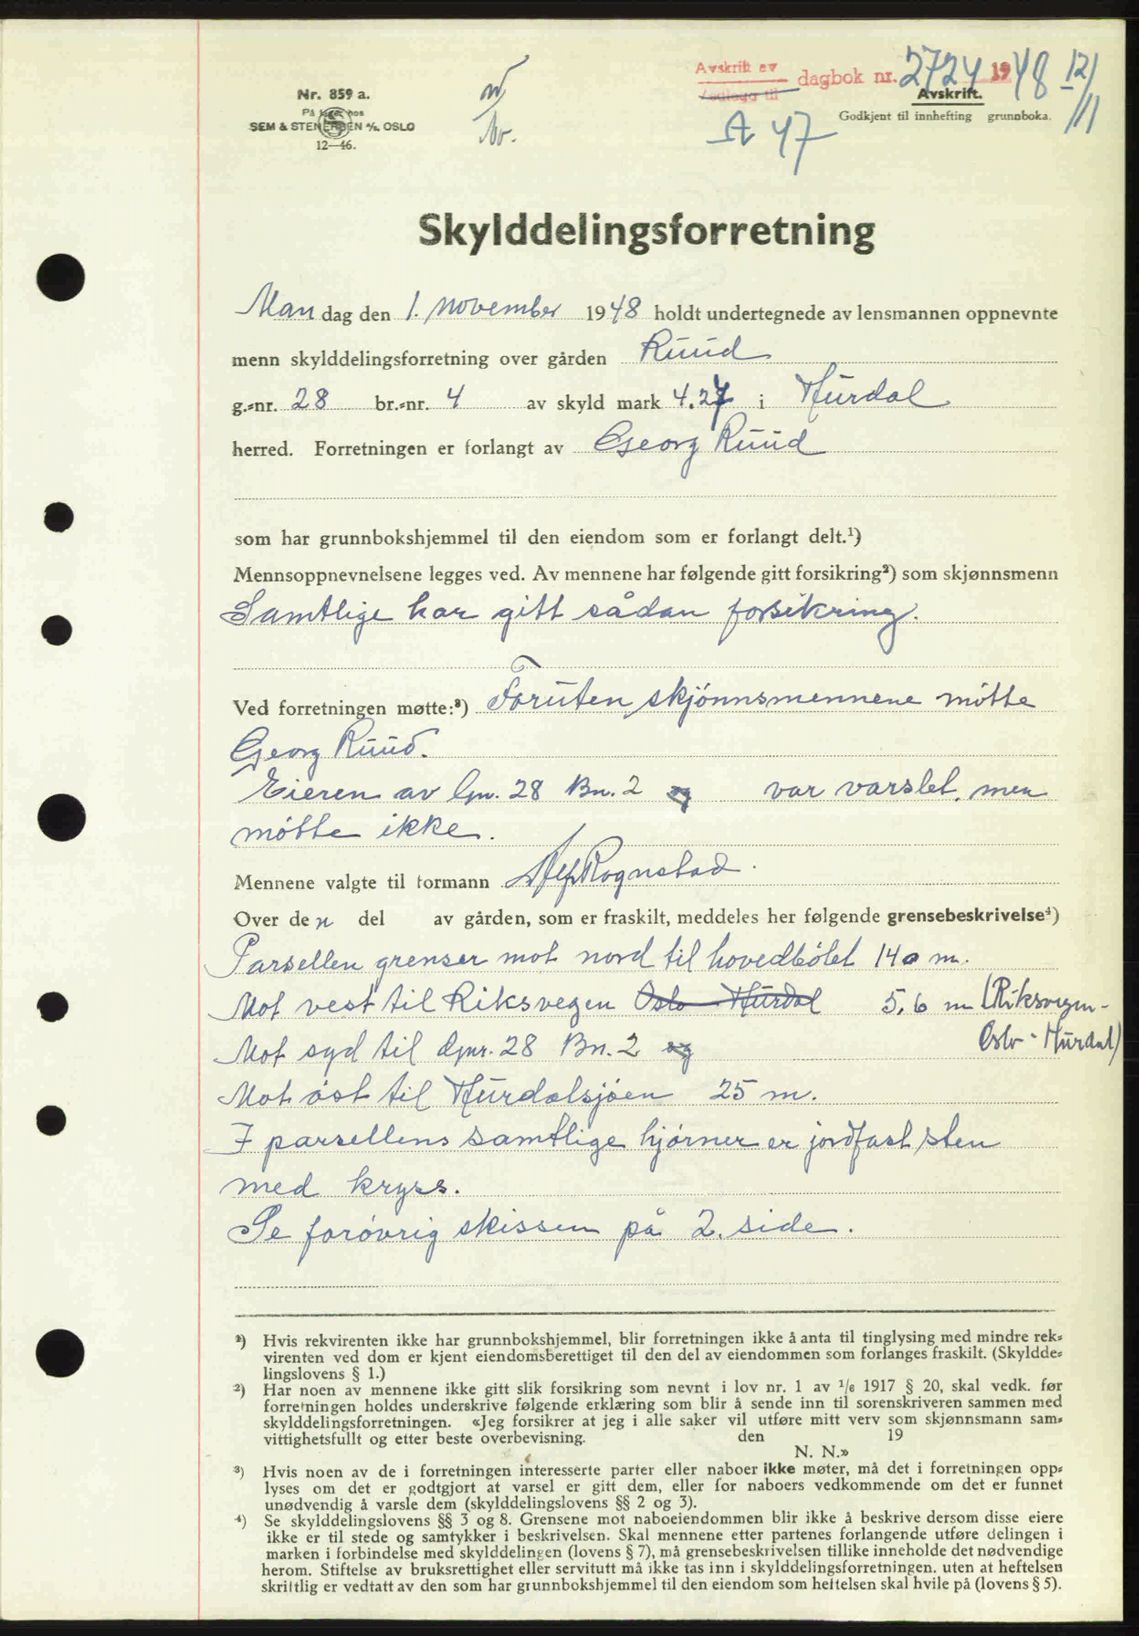 Nr. 859 a.
På lager hos
SEM & STENERSEN A/S. OSLO
12—46.
Avskrift av
vedlegg til
dagbok nr. 2724 1948 12/11
Avskrift.
Godkjent til innhefting grunnboka.
A 47
Skylddelingsforretning
Man dag den 1. november 1948 holdt undertegnede av lensmannen oppnevnte
menn skylddelingsforretning over gården Ruud
g.=nr. 28 br.=nr. 4 av skyld mark 4.27 i Hurdal
herred. Forretningen er forlangt av Georg Ruud
som har grunnbokshjemmel til den eiendom som er forlangt delt.¹)
Mennsoppnevnelsene legges ved. Av mennene har følgende gitt forsikring²) som skjønnsmenn
Samtlige har gitt sådan forsikring.
Ved forretningen møtte:³) Foruten skjønnsmennene møtte
Georg Ruud.
Eieren av Gnr. 28 Bn. 2 og var varslet, men
møtte ikke.
Mennene valgte til formann Alf Rognstad.
Over den del av gården, som er fraskilt, meddeles her følgende grensebeskrivelse⁴)
Parsellen grenser mot nord til hovedbølet 140 m.
Mot vest til Riksvegen Oslo - Hurdal 5,6 m (Riksvegen-
Oslo - Hurdal)
Mot syd til Gnr. 28 Bn. 2 og
Mot øst til Hurdalsjøen 25 m.
I parsellens samtlige hjørner er jordfast sten
med kryss.
Se forøvrig skissen på 2. side.
¹) Hvis rekvirenten ikke har grunnbokshjemmel, blir forretningen ikke å anta til tinglysing med mindre rek=
virenten ved dom er kjent eiendomsberettiget til den del av eiendommen som forlanges fraskilt. (Skyldde=
lingslovens § 1.)
²) Har noen av mennene ikke gitt slik forsikring som nevnt i lov nr. 1 av 1/6 1917 § 20, skal vedk. før
forretningen holdes underskrive følgende erklæring som blir å sende inn til sorenskriveren sammen med
skylddelingsforretningen. «Jeg forsikrer at jeg i alle saker vil utføre mitt verv som skjønnsmann sam=
vittighetsfullt og etter beste overbevisning. den 19
N. N.»
³) Hvis noen av de i forretningen interesserte parter eller naboer ikke møter, må det i forretningen opp=
lyses om det er godtgjort at varsel er gitt dem, eller for naboers vedkommende om det er funnet
unødvendig å varsle dem (skylddelingslovens §§ 2 og 3).
⁴) Se skylddelingslovens §§ 3 og 8. Grensene mot naboeiendommen blir ikke å beskrive dersom disse eiere
ikke er til stede og samtykker i beskrivelsen. Skal mennene etter partenes forlangende utføre delingen i
marken i forbindelse med skylddelingen (lovens § 7), må grensebeskrivelsen tillike inneholde det nødvendige
herom. Stiftelse av bruksrettighet eller servitutt må ikke tas inn i skylddelingsforretningen. uten at heftelsen
skriftlig er vedtatt av den som har grunnbokshjemmel til den eiendom som heftelsen skal hvile på (lovens § 5).